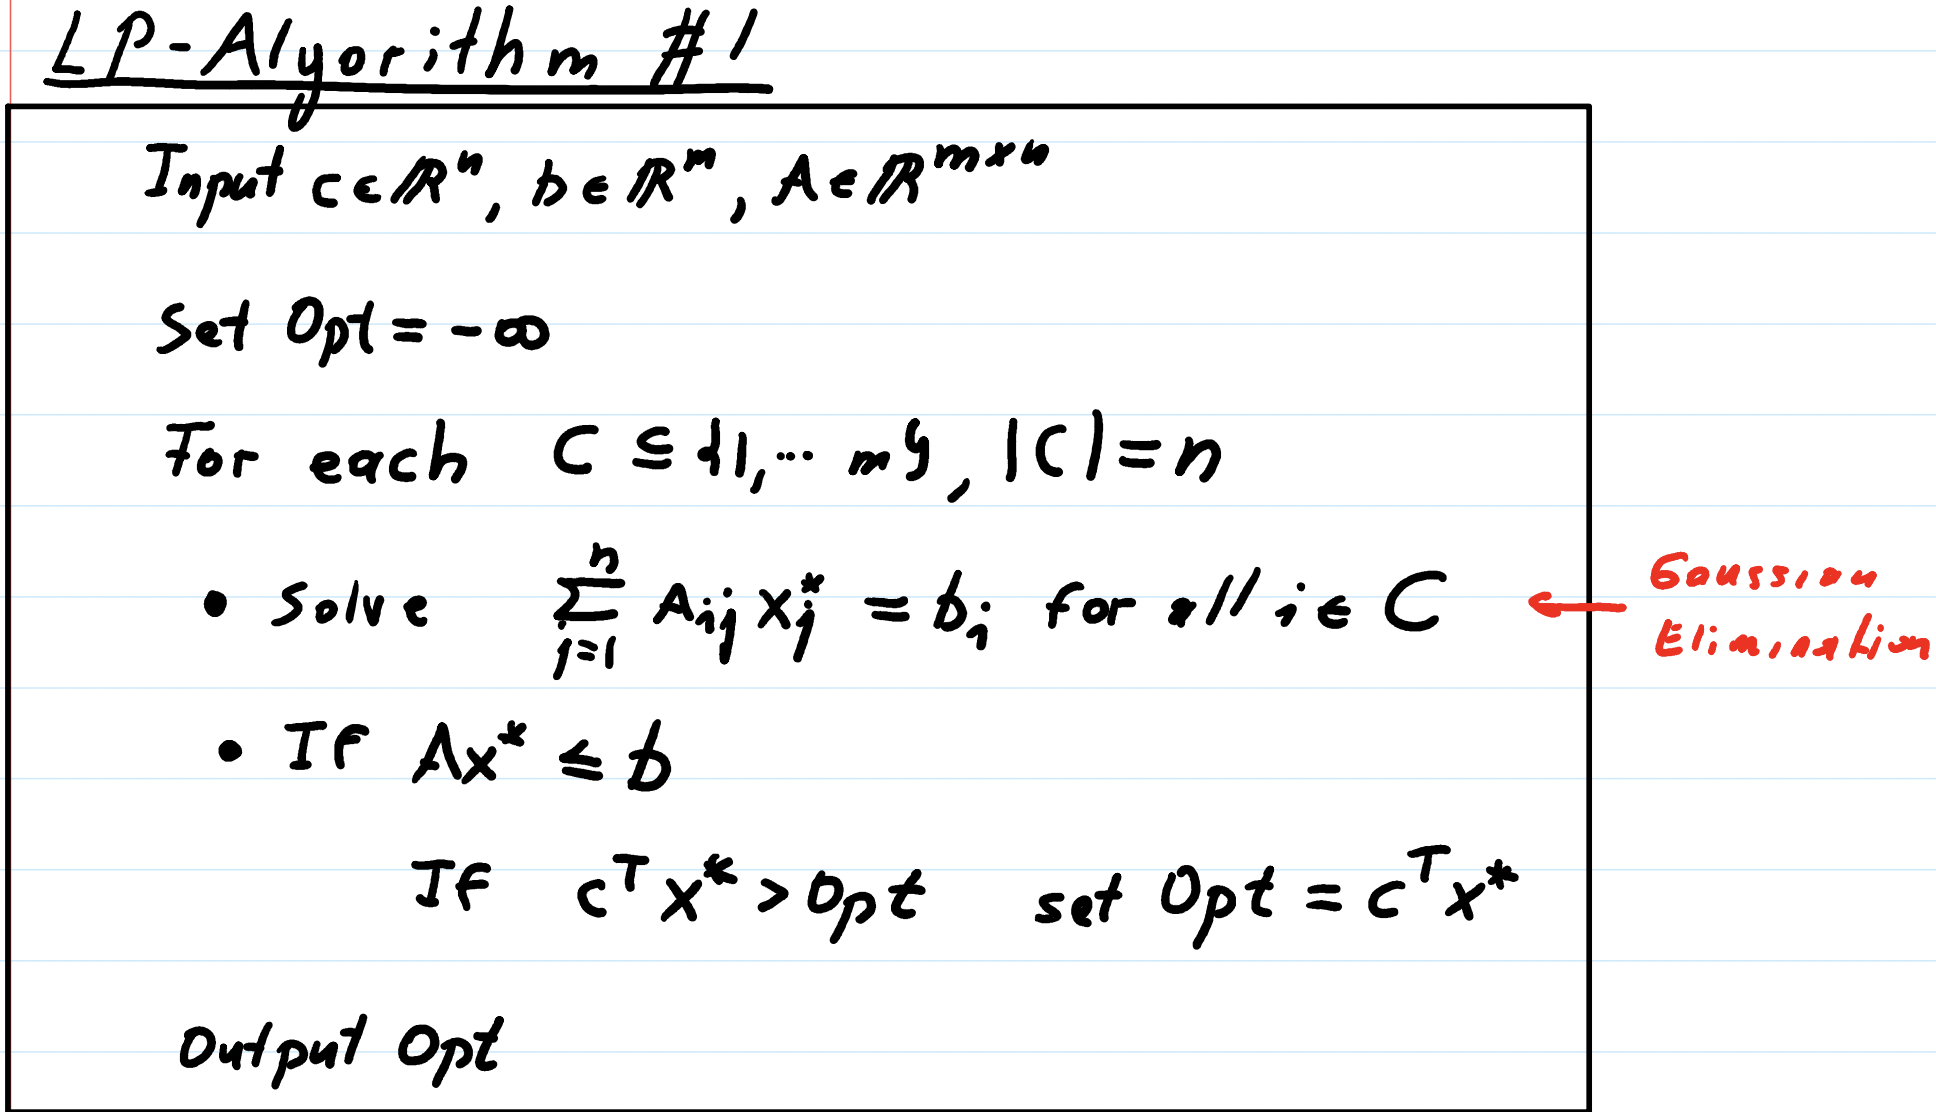 LP-Algorithm #1
Input c ∈ ℝⁿ, b ∈ ℝᵐ, A ∈ ℝᵐˣⁿ
Set Opt = -∞
For each C ⊆ {1,... m}, |C| = n
• Solve ∑_{j=1}^{n} A_{ij} x_j^* = b_i for all i ∈ C ← Gaussian
Elimination
• If Ax^* ≤ b
If c^T x^* > Opt set Opt = c^T x^*
Output Opt